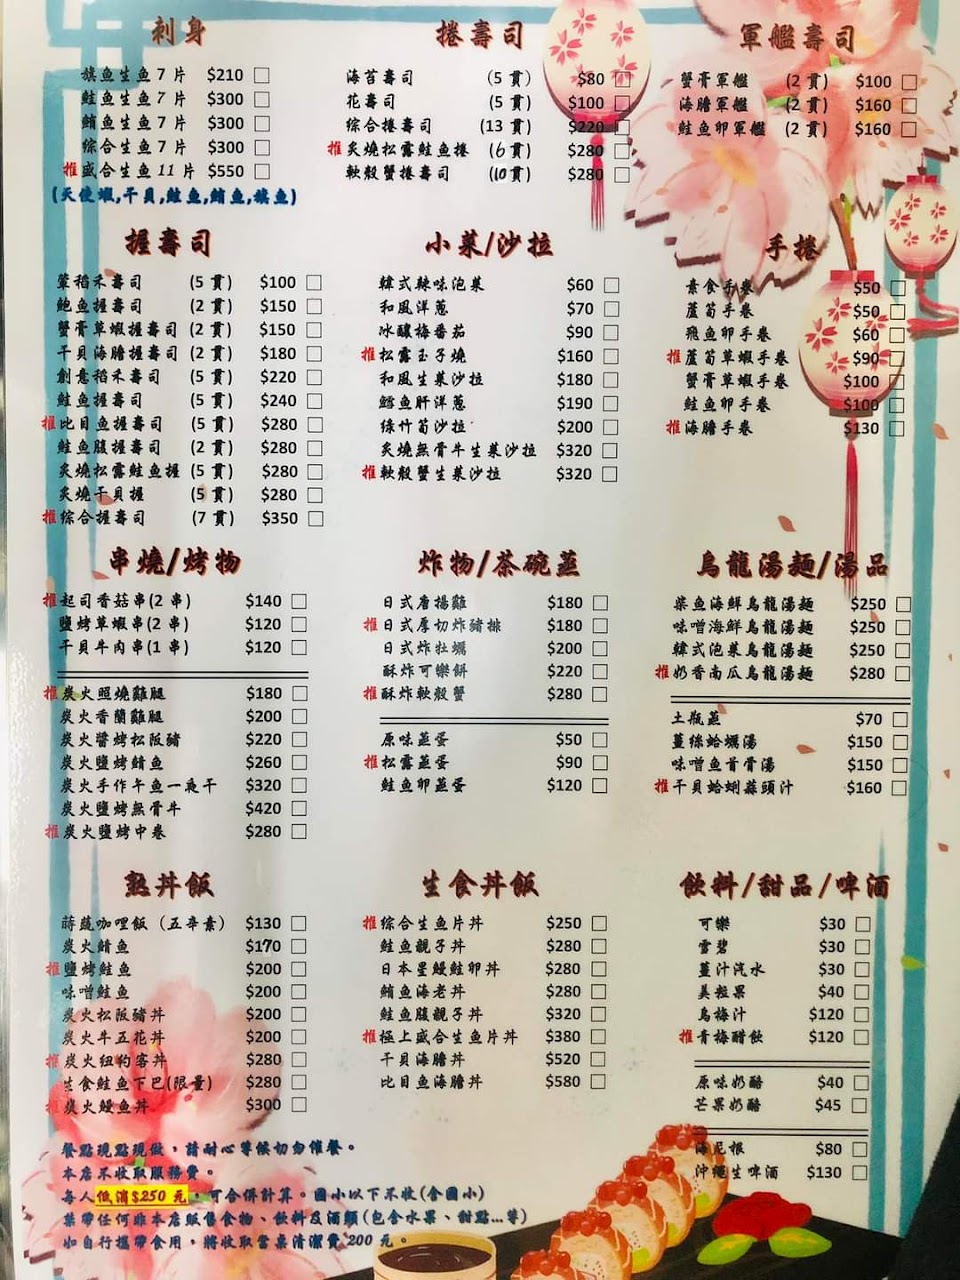 刺身
旗魚生魚7片 $210
鮭魚生魚7片 $300
鮪魚生魚7片 $300
綜合生魚7片 $300
推盛合生魚11片 $550
(天使蝦,干貝,鮭魚,鮪魚,旗魚)
捲壽司
海苔壽司 (5貫) $80
花壽司 (5貫) $100
綜合捲壽司 (13貫) $220
推炙燒松露鮭魚捲 (6貫) $280
軟殼蟹捲壽司 (10貫) $280
軍艦壽司
蟹膏軍艦 (2貫) $100
海膽軍艦 (2貫) $160
鮭魚卵軍艦 (2貫) $160
握壽司
葷稻禾壽司 (5貫) $100
鮑魚握壽司 (2貫) $150
蟹膏草蝦握壽司 (2貫) $150
干貝海膽握壽司 (2貫) $180
創意稻禾壽司 (5貫) $220
鮭魚握壽司 (5貫) $240
推比目魚握壽司 (5貫) $280
鮭魚腹握壽司 (2貫) $280
炙燒松露鮭魚握 (5貫) $280
炙燒干貝握 (5貫) $280
推綜合握壽司 (7貫) $350
小菜/沙拉
韓式辣味泡菜 $60
和風洋蔥 $70
冰釀梅番茄 $90
推松露玉子燒 $160
和風生菜沙拉 $180
鱈魚肝洋蔥 $190
綠竹筍沙拉 $200
炙燒無骨牛生菜沙拉 $320
推軟殼蟹生菜沙拉 $320
手捲
素食手卷 $50
蘆筍手卷 $50
飛魚卵手卷 $60
推蘆筍草蝦手卷 $90
蟹膏草蝦手卷 $100
鮭魚卵手卷 $100
推海膽手卷 $130
串燒/烤物
推起司香菇串(2串) $140
鹽烤草蝦串(2串) $120
干貝牛肉串(1串) $120
推炭火照燒雞腿 $180
炭火香蘭雞腿 $200
炭火醬烤松阪豬 $220
炭火鹽烤鯖魚 $260
炭火手作午魚一夜干 $320
炭火鹽烤無骨牛 $420
推炭火鹽烤中卷 $280
炸物/茶碗蒸
日式唐揚雞 $180
推日式厚切炸豬排 $180
日式炸牡蠣 $200
酥炸可樂餅 $220
推酥炸軟殼蟹 $280
原味蒸蛋 $50
推松露蒸蛋 $90
鮭魚卵蒸蛋 $120
烏龍湯麵/湯品
柴魚海鮮烏龍湯麵 $250
味噌海鮮烏龍湯麵 $250
韓式泡菜烏龍湯麵 $250
推奶香南瓜烏龍湯麵 $280
土瓶蒸 $70
薑絲蛤蠣湯 $150
味噌魚首骨湯 $150
推干貝蛤蜊蒜頭汁 $160
熟丼飯
蒔蔬咖哩飯(五辛素) $130
炭火鯖魚 $170
推鹽烤鮭魚 $200
味噌鮭魚 $200
炭火松阪豬丼 $200
炭火牛五花丼 $200
推炭火紐約客丼 $280
生食鮭魚下巴(限量) $280
推炭火鰻魚丼 $300
生食丼飯
推綜合生魚片丼 $250
鮭魚親子丼 $280
日本星鰻鮭卵丼 $280
鮪魚海老丼 $280
鮭魚腹親子丼 $320
推極上盛合生魚片丼 $380
干貝海膽丼 $520
比目魚海膽丼 $580
飲料/甜品/啤酒
可樂 $30
雪碧 $30
薑汁汽水 $30
美粒果 $40
烏梅汁 $120
推青梅醋飲 $120
原味奶酪 $40
芒果奶酪 $45
海尼根 $80
沖繩生啤酒 $130
餐點現點現做，請耐心等候切勿催餐。
本店不收取服務費。
每人低消$250元，可合併計算。國小以下不收(含國小)
禁帶任何非本店販售食物、飲料及酒類(包含水果、甜點...等)
如自行攜帶食用，將收取當桌清潔費200元。